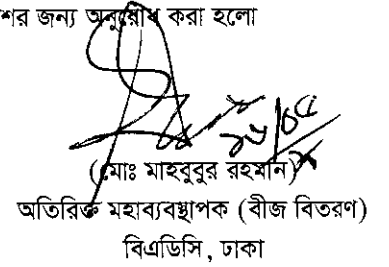 শর জন্য অনুরোধ করা হলো
(মোঃ মাহবুবুর রহমান)
অতিরিক্ত মহাব্যবস্থাপক (বীজ বিতরণ)
বিএডিসি, ঢাকা